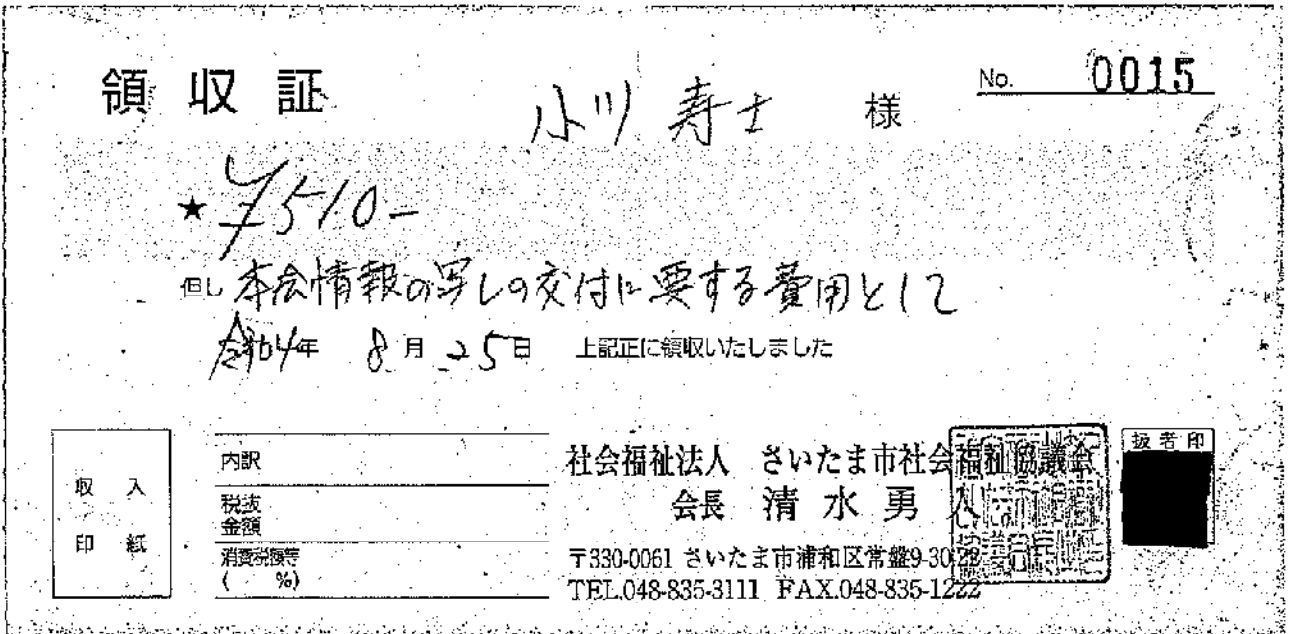 領収証 小川 寿士 様 No. 0015
★ ¥510-
但し 本会情報の写しの交付に要する費用として
令和4年 8月25日 上記正に領収いたしました
収入
印紙
内訳
税抜
金額
消費税額等
( %)
社会福祉法人 さいたま市社会福祉協議会
会長 清水勇人
〒330-0061 さいたま市浦和区常盤9-30-22
TEL.048-835-3111 FAX.048-835-1222
扱者印